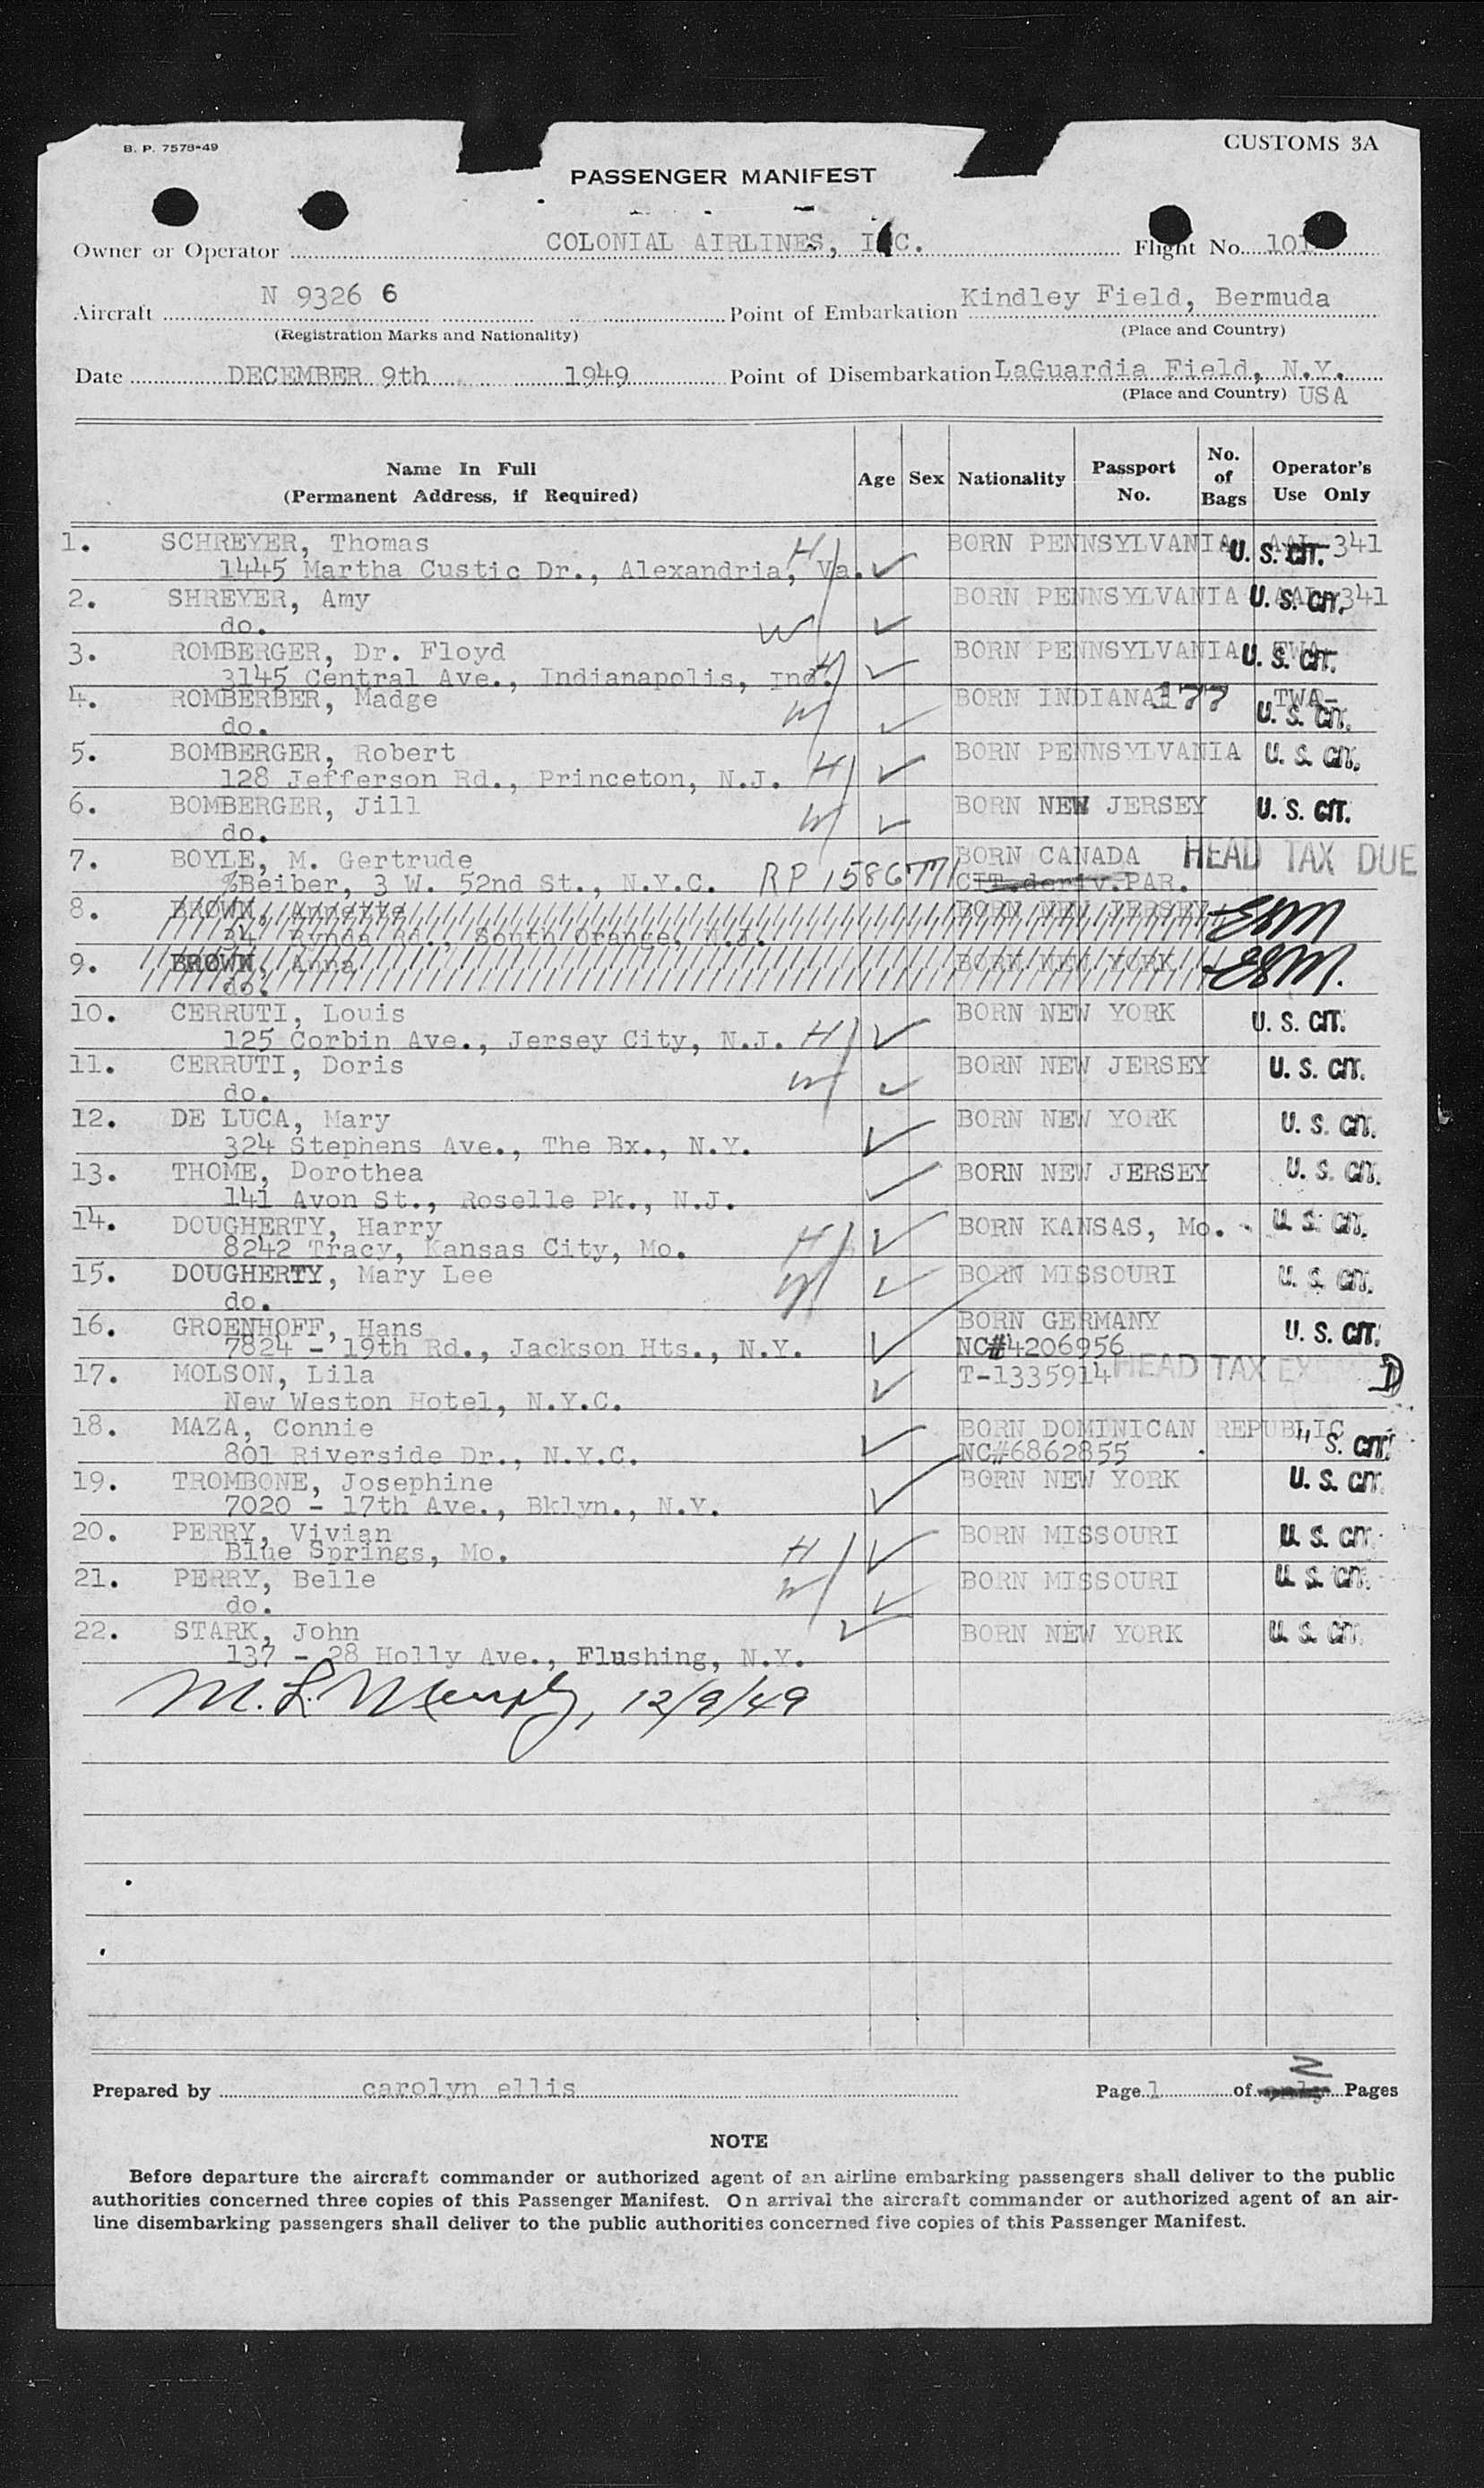 B. P. 7578-49
CUSTOMS 3A
PASSENGER MANIFEST
Owner or Operator COLONIAL AIRLINES, INC. Flight No. 101
Aircraft N 9326 6 Point of Embarkation Kindley Field, Bermuda
(Registration Marks and Nationality) (Place and Country)
Date DECEMBER 9th 1949 Point of Disembarkation LaGuardia Field, N.Y.
(Place and Country) USA
Name In Full (Permanent Address, if Required) Age Sex Nationality Passport No. No. of Bags Operator's Use Only
1. SCHREYER, Thomas H BORN PENNSYLVANIA U. S. CIT. AAL 341
1445 Martha Custic Dr., Alexandria, Va.
2. SHREYER, Amy BORN PENNSYLVANIA U. S. CIT. AAL 341
do. W
3. ROMBERGER, Dr. Floyd BORN PENNSYLVANIA TWA U. S. CIT.
3145 Central Ave., Indianapolis, Ind. H
4. ROMBERBER, Madge BORN INDIANA 177 TWA-
do. W U. S. CIT.
5. BOMBERGER, Robert BORN PENNSYLVANIA U. S. CIT.
128 Jefferson Rd., Princeton, N.J. H
6. BOMBERGER, Jill BORN NEW JERSEY U. S. CIT.
do. W
7. BOYLE, M. Gertrude BORN CANADA HEAD TAX DUE
%Beiber, 3 W. 52nd St., N.Y.C. RP 158677 CIT.deriv.PAR.
8. BROWN, Annette BORN NEW JERSEY ESM
34 Rynda Rd., South Orange, N.J.
9. BROWN, Anna BORN NEW YORK ESM.
do.
10. CERRUTI, Louis BORN NEW YORK U. S. CIT.
125 Corbin Ave., Jersey City, N.J. H
11. CERRUTI, Doris BORN NEW JERSEY U. S. CIT.
do. W
12. DE LUCA, Mary BORN NEW YORK U. S. CIT.
324 Stephens Ave., The Bx., N.Y.
13. THOME, Dorothea BORN NEW JERSEY U. S. CIT.
141 Avon St., Roselle Pk., N.J.
14. DOUGHERTY, Harry BORN KANSAS, Mo. U. S. CIT.
8242 Tracy, Kansas City, Mo. H
15. DOUGHERTY, Mary Lee BORN MISSOURI U. S. CIT.
do. W
16. GROENHOFF, Hans BORN GERMANY U. S. CIT.
7824 - 19th Rd., Jackson Hts., N.Y. NC#4206956
17. MOLSON, Lila T-1335914 HEAD TAX EX D
New Weston Hotel, N.Y.C.
18. MAZA, Connie BORN DOMINICAN REPUBLIC
801 Riverside Dr., N.Y.C. NC#6862855 U. S. CIT.
19. TROMBONE, Josephine BORN NEW YORK U. S. CIT.
7020 - 17th Ave., Bklyn., N.Y.
20. PERRY, Vivian BORN MISSOURI U. S. CIT.
Blue Springs, Mo. H
21. PERRY, Belle BORN MISSOURI U. S. CIT.
do. W
22. STARK, John BORN NEW YORK U. S. CIT.
137 - 28 Holly Ave., Flushing, N.Y.
M. L. Murphy, 12/9/49
Prepared by carolyn ellis Page 1 of only 2 Pages
NOTE
Before departure the aircraft commander or authorized agent of an airline embarking passengers shall deliver to the public
authorities concerned three copies of this Passenger Manifest. On arrival the aircraft commander or authorized agent of an air-
line disembarking passengers shall deliver to the public authorities concerned five copies of this Passenger Manifest.